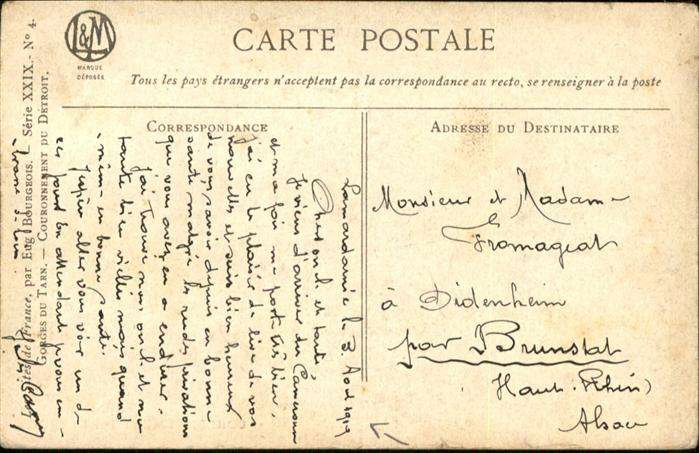 L&M
MARQUE
DÉPOSÉE
CARTE POSTALE
Tous les pays étrangers n'acceptent pas la correspondance au recto, se renseigner à la poste
CORRESPONDANCE
ADRESSE DU DESTINATAIRE
le 3 Aout 1919
Cher oncle et tante,
Je viens d'arriver du Cameroun
et ma foi me porte très bien.
J'ai eu le plaisir de lire de vos
nouvelles et suis bien heureux
de vous savoir depuis en bonne
sante malgre les rudes
que vous avez eu a endurer.
J'ai trouvé mon oncle et ma
tante bien vieillis mais quand
même en bonne santé.
J'espère aller vous voir un de
ces jours en attendant
Monsieur et Madame
Fromageat
à Didenheim
par Brunstat
Haut-Rhin)
Alsace
Sites de France, par Eug. Bourgeois. Série XXIX.- No 4.
GORGES DU TARN. — COURONNEMENT DU DÉTROIT.